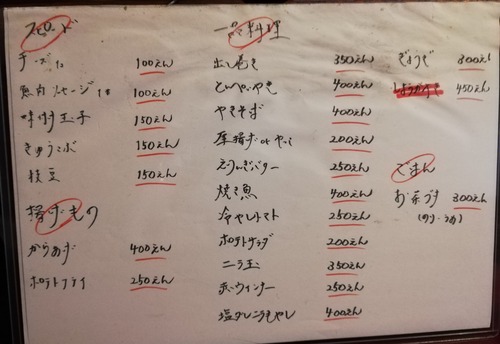 スピード
チーズ 100えん
魚肉ソーセージ 100えん
味付玉子 150えん
きゅうり 150えん
枝豆 150えん
揚げもの
からあげ 400えん
ポテトフライ 250えん
一品料理
出し巻き 350えん
とんぺいやき 400えん
やきそば 400えん
厚揚げ 200えん
バター 250えん
焼き魚 400えん
冷やしトマト 250えん
ポテトサラダ 200えん
ニラ玉 350えん
赤ウインナー 250えん
塩ダレニラもやし 400えん
ぎょうざ 300えん
450えん
ごはん
お茶づけ 300えん
(のり・うめ)